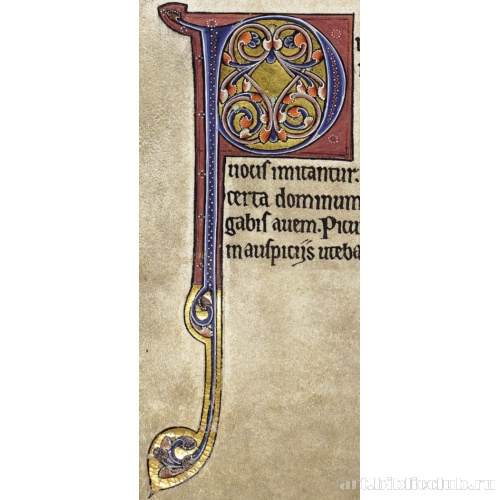 P
nocis imitantur.
certa dominum
gabis auem. Picu
m auspicijs uteba
art.biblioclub.ru